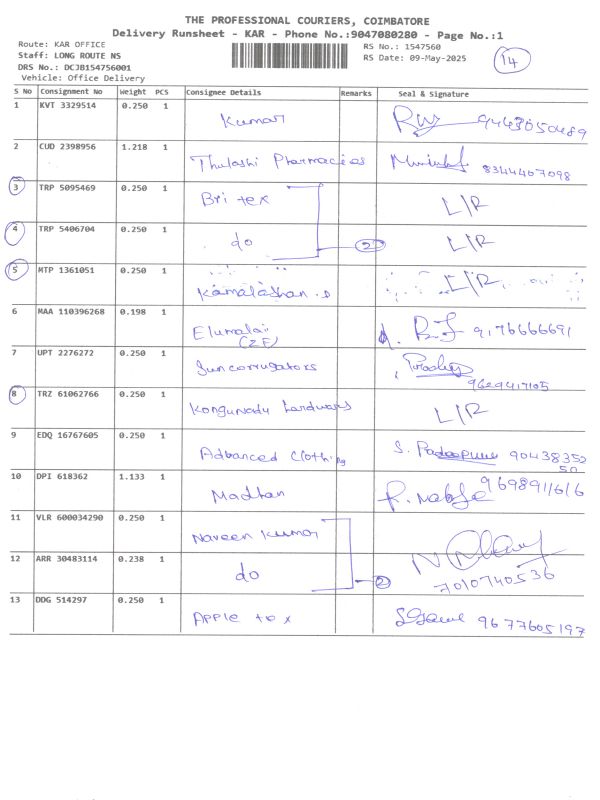 THE PROFESSIONAL COURIERS, COIMBATORE
Delivery Runsheet - KAR - Phone No.:9047080280 - Page No.:1
Route: KAR OFFICE
RS No.: 1547560
Staff: LONG ROUTE NS
RS Date: 09-May-2025
14
DRS No.: DCJB154756001
Vehicle: Office Delivery
S No Consignment No Weight PCS Consignee Details Remarks Seal & Signature
1 KVT 3329514 0.250 1 Kumar 9463050489
2 CUD 2398956 1.218 1 Thulashi Pharmacies 8344407098
3 TRP 5095469 0.250 1 Bri tex L/R
4 TRP 5406704 0.250 1 do 2 L/R
5 MTP 1361051 0.250 1 L/R
6 MAA 110396268 0.198 1 Elumalai 9176666691
(ZF)
7 UPT 2276272 0.250 1 Suncorrugators
9629417105
8 TRZ 61062766 0.250 1 Kongunadu hardwares L/R
9 EDQ 16767605 0.250 1 Advanced Clothing S. 9043835250
10 DPI 618362 1.133 1 Madhan 9698911616
11 VLR 600034290 0.250 1 Naveen Kumar
12 ARR 30483114 0.238 1 do 2 7010740536
13 DDG 514297 0.250 1 Apple tex 9677605197